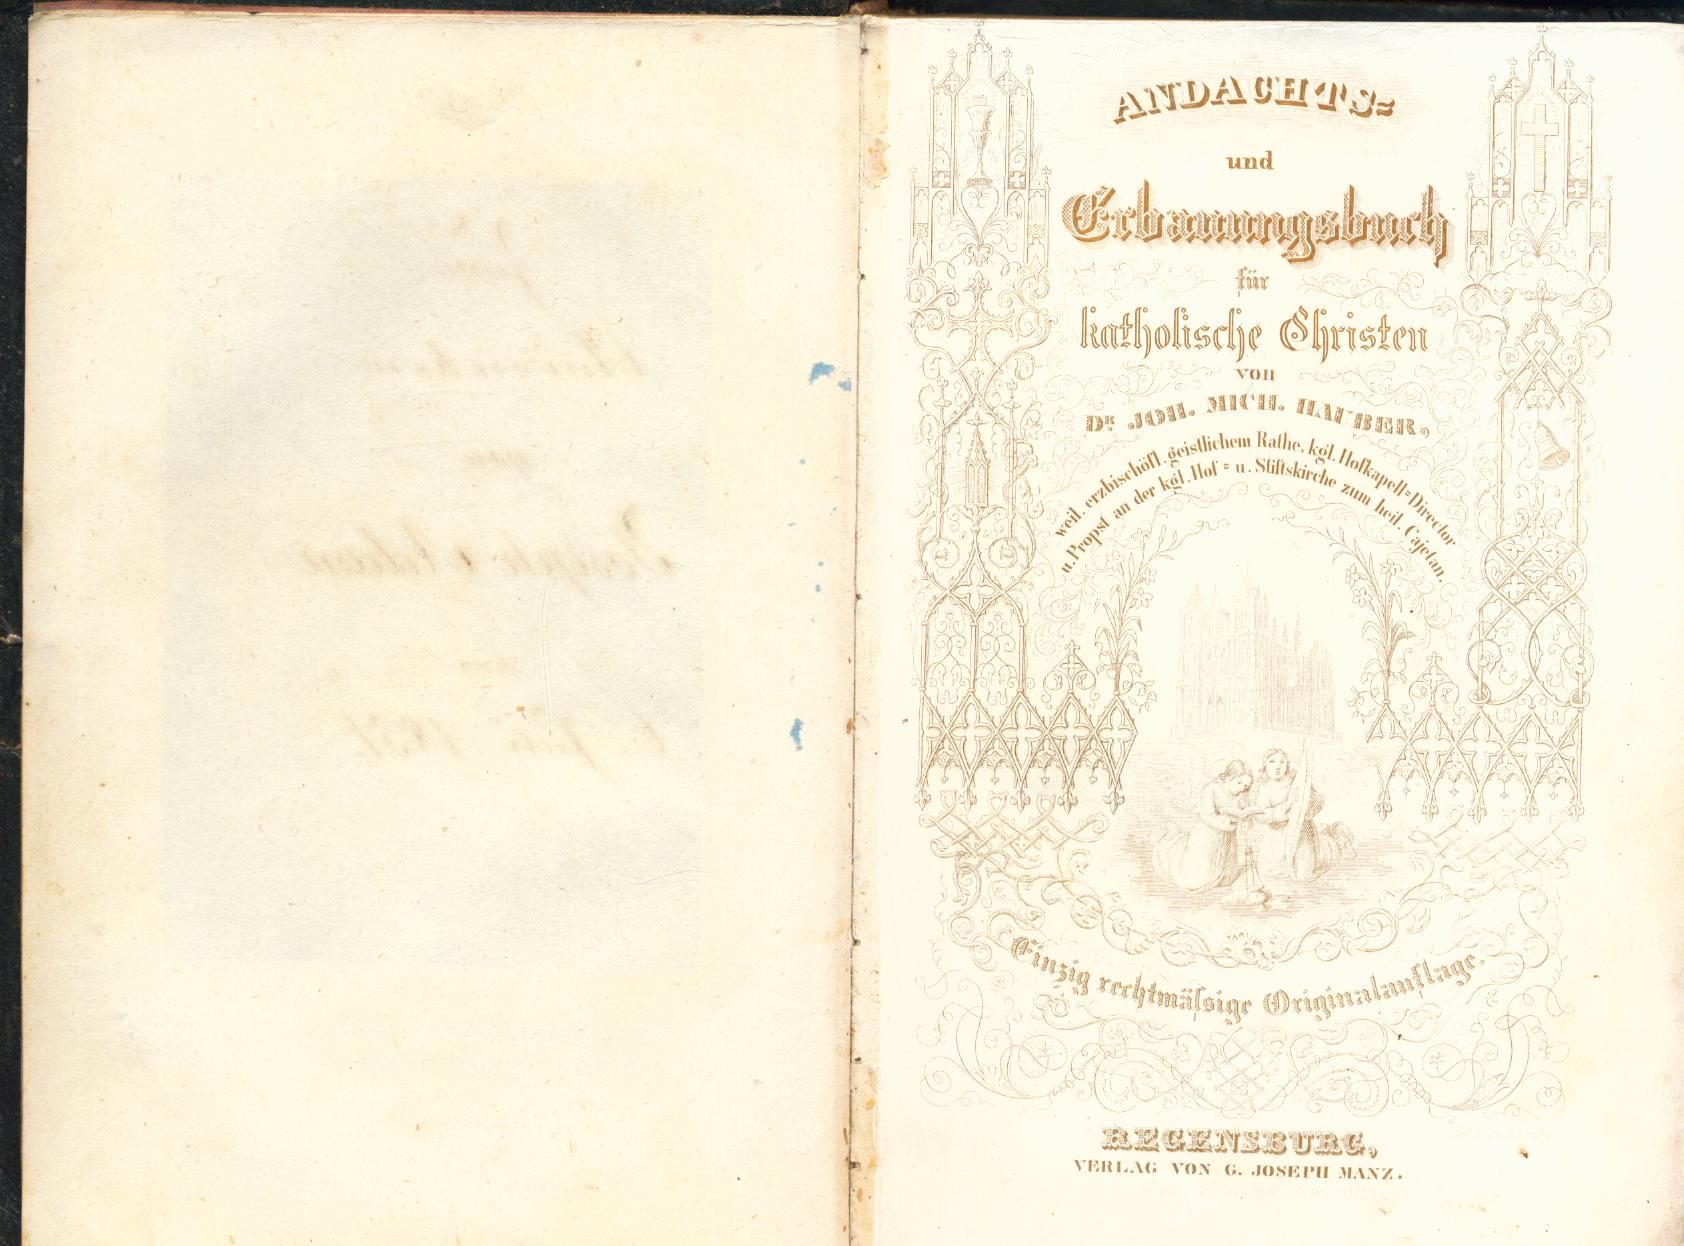 ANDACHTS=
und
Erbauungsbuch
für
katholische Christen
von
Dr. JOH. MICH. HAUBER,
weil. erzbischöfl. geistlichem Rathe, kgl. Hofkapell=Director
u. Propst an der kgl. Hof= u. Stiftskirche zum heil. Cajetan.
Einzig rechtmäſsige Originalauflage.
REGENSBURG,
VERLAG VON G. JOSEPH MANZ.